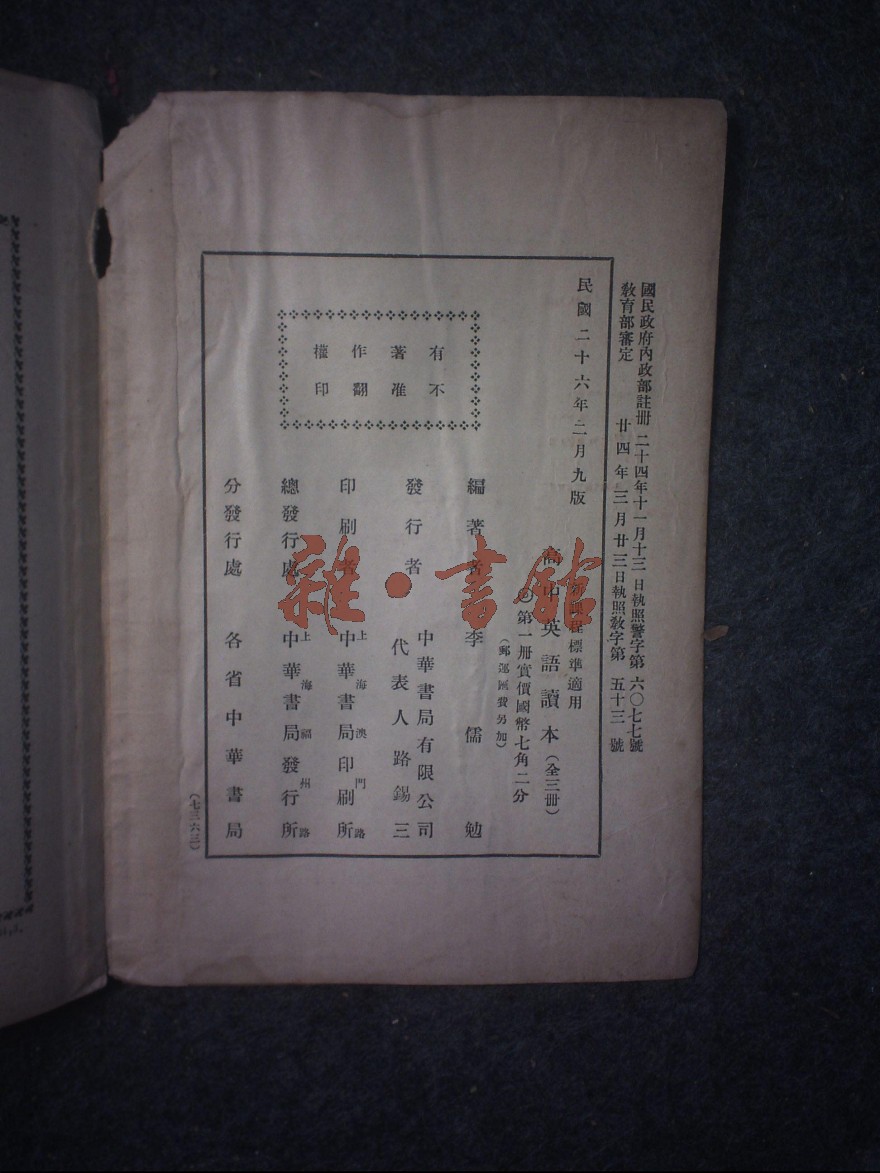 國民政府內政部註冊 二十四年十一月十三日執照警字第 六〇七七號
教育部審定 廿四年三月廿三日執照教字第 五十三 號
民國二十六年二月九版
新課程標準適用
高中英語讀本(全三冊)
第一冊實價國幣七角二分
(郵運匯費另加)
有不
著准
作翻
權印
編著者 李儒勉
發行者 中華書局有限公司
代表人路錫三
印刷者 上海澳門路
中華書局印刷所
總發行處 上海福州路
中華書局發行所
分發行處 各省中華書局
(七三六三)
雜·書館